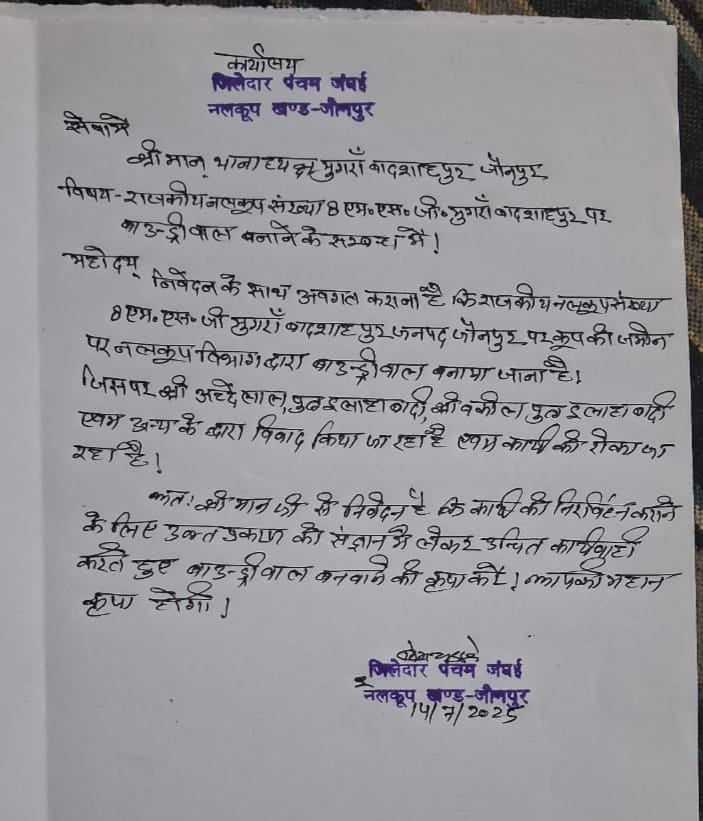 कार्यालय
जिलेदार पंचम जंघई
नलकूप खण्ड-जौनपुर
सेवामे
श्रीमान् थानाध्यक्ष मुगराँ बादशाहपुर जौनपुर
विषय - राजकीय नलकूप संख्या 8 एम. एस. जी. मुगराँ बादशाहपुर पर
बाउन्ड्रीवाल बनाने के सम्बन्ध में।
महोदय्
निवेदन के साथ अवगत कराना है कि राजकीय नलकूप संख्या
8 एम. एस. जी मुगराँ बादशाहपुर जनपद जौनपुर पर कूप की जमीन
पर नलकूप विभाग द्वारा बाउन्ड्रीवाल बनाया जाना है।
जिसपर श्री अच्छेलाल, पुत्र इलाहाबादी, श्री वकील पुत्र इलाहाबादी
एवम अन्य के द्वारा विवाद किया जा रहा है एवम कार्य को रोका जा
रहा है।
अतः श्रीमान जी से निवेदन है कि कार्य को निर्विघ्न कराने
के लिए उक्त प्रकरण को संज्ञान में लेकर उचित कार्यवाही
करते हुए बाउन्ड्रीवाल बनवाने की कृपा करें। आपकी महान
कृपा होगी।
जिलेदार पंचम जंघई
नलकूप खण्ड-जौनपुर
14/7/2025